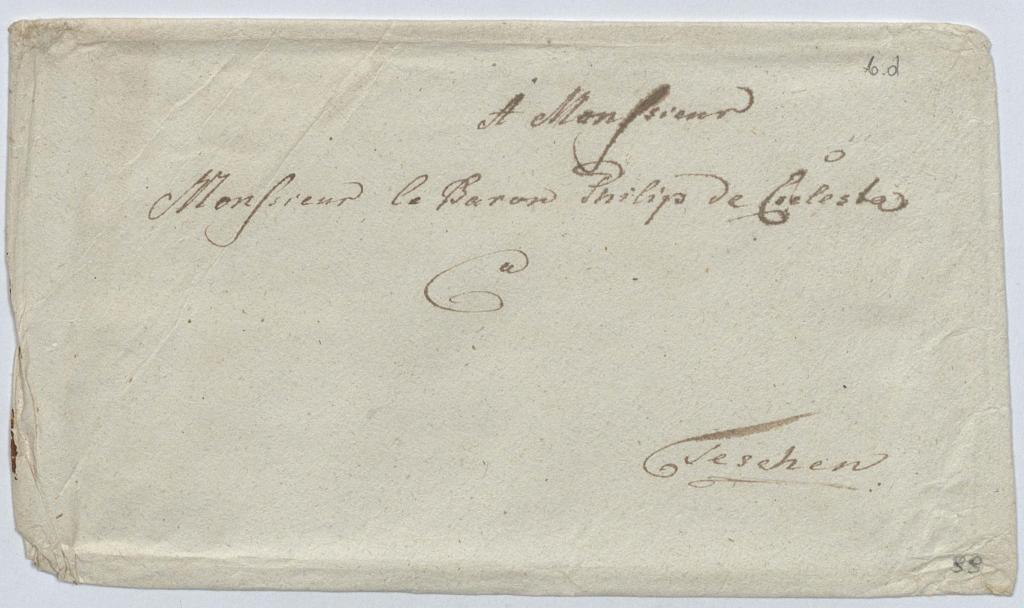 b.d
A Monsieur
Monsieur le Baron Philip de Celesta
a
Teschen.